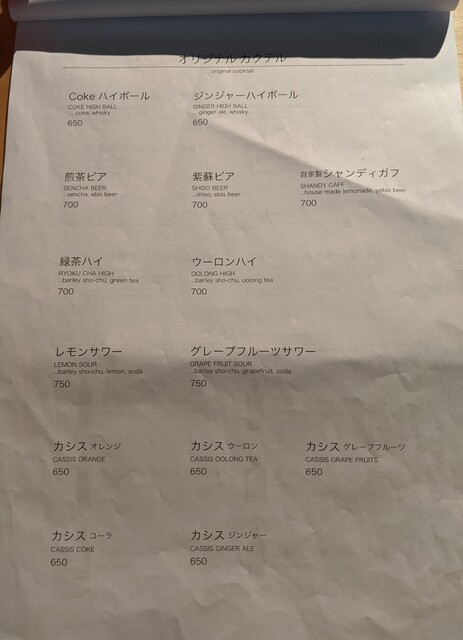 オリジナル カクテル
original cocktail
Coke ハイボール
COKE HIGH BALL
... coke, whisky
650
ジンジャーハイボール
GINGER HIGH BALL
... ginger ale, whisky
650
煎茶ビア
SENCHA BEER
...sencha, ebis beer
700
紫蘇ビア
SHISO BEER
...shiso, ebis beer
700
自家製シャンディガフ
SHANDY GAFF
...house made lemonade, yebis beer
700
緑茶ハイ
RYOKU CHA HIGH
...barley sho-chu, green tea
700
ウーロンハイ
OOLONG HIGH
...barley sho-chu, oolong tea
700
レモンサワー
LEMON SOUR
...barley sho-chu, lemon, soda
750
グレープフルーツサワー
GRAPE FRUIT SOUR
...barley sho-chu, grapefruit, soda
750
カシス オレンジ
CASSIS ORANGE
650
カシス ウーロン
CASSIS OOLONG TEA
650
カシス グレープフルーツ
CASSIS GRAPE FRUITS
650
カシス コーラ
CASSIS COKE
650
カシス ジンジャー
CASSIS GINGER ALE
650